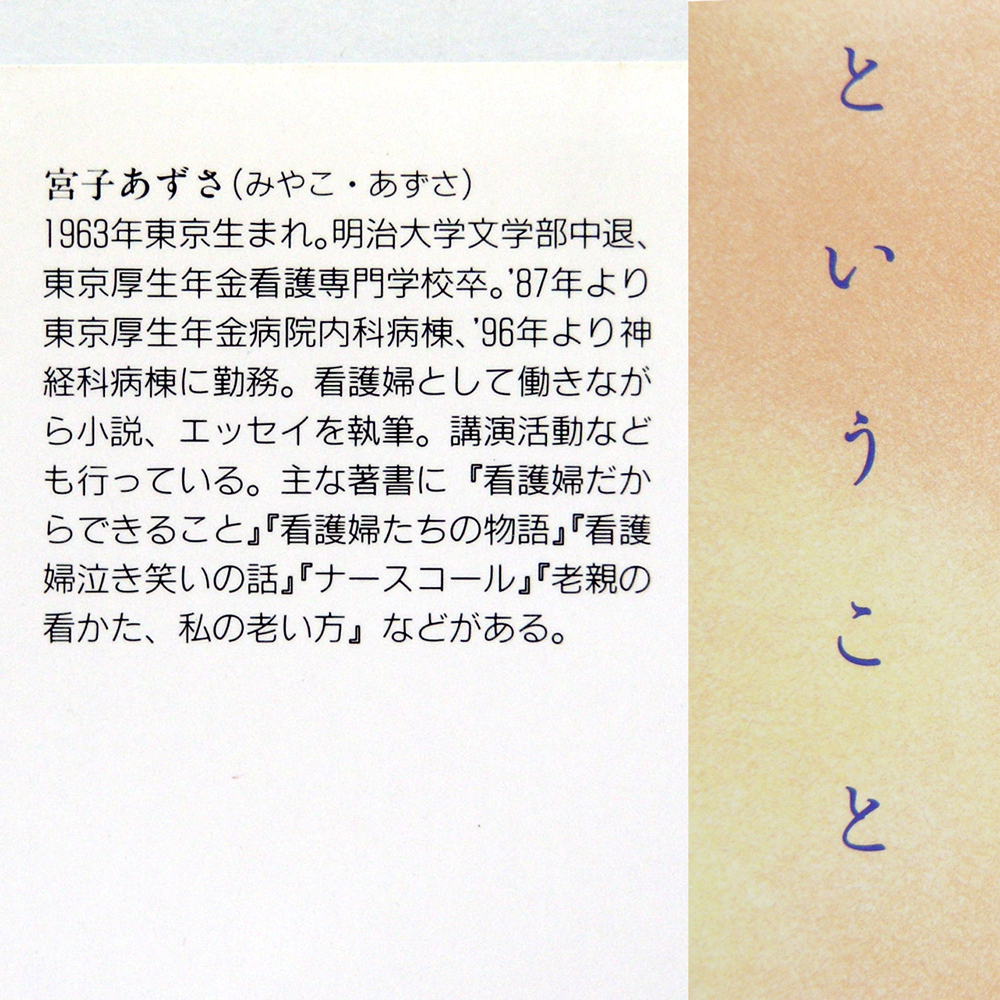 宮子あずさ(みやこ・あずさ)
1963年東京生まれ。明治大学文学部中退、
東京厚生年金看護専門学校卒。'87年より
東京厚生年金病院内科病棟、'96年より神
経科病棟に勤務。看護婦として働きなが
ら小説、エッセイを執筆。講演活動など
も行っている。主な著書に『看護婦だか
らできること』『看護婦たちの物語』『看護
婦泣き笑いの話』『ナースコール』『老親の
看かた、私の老い方』などがある。
ということ